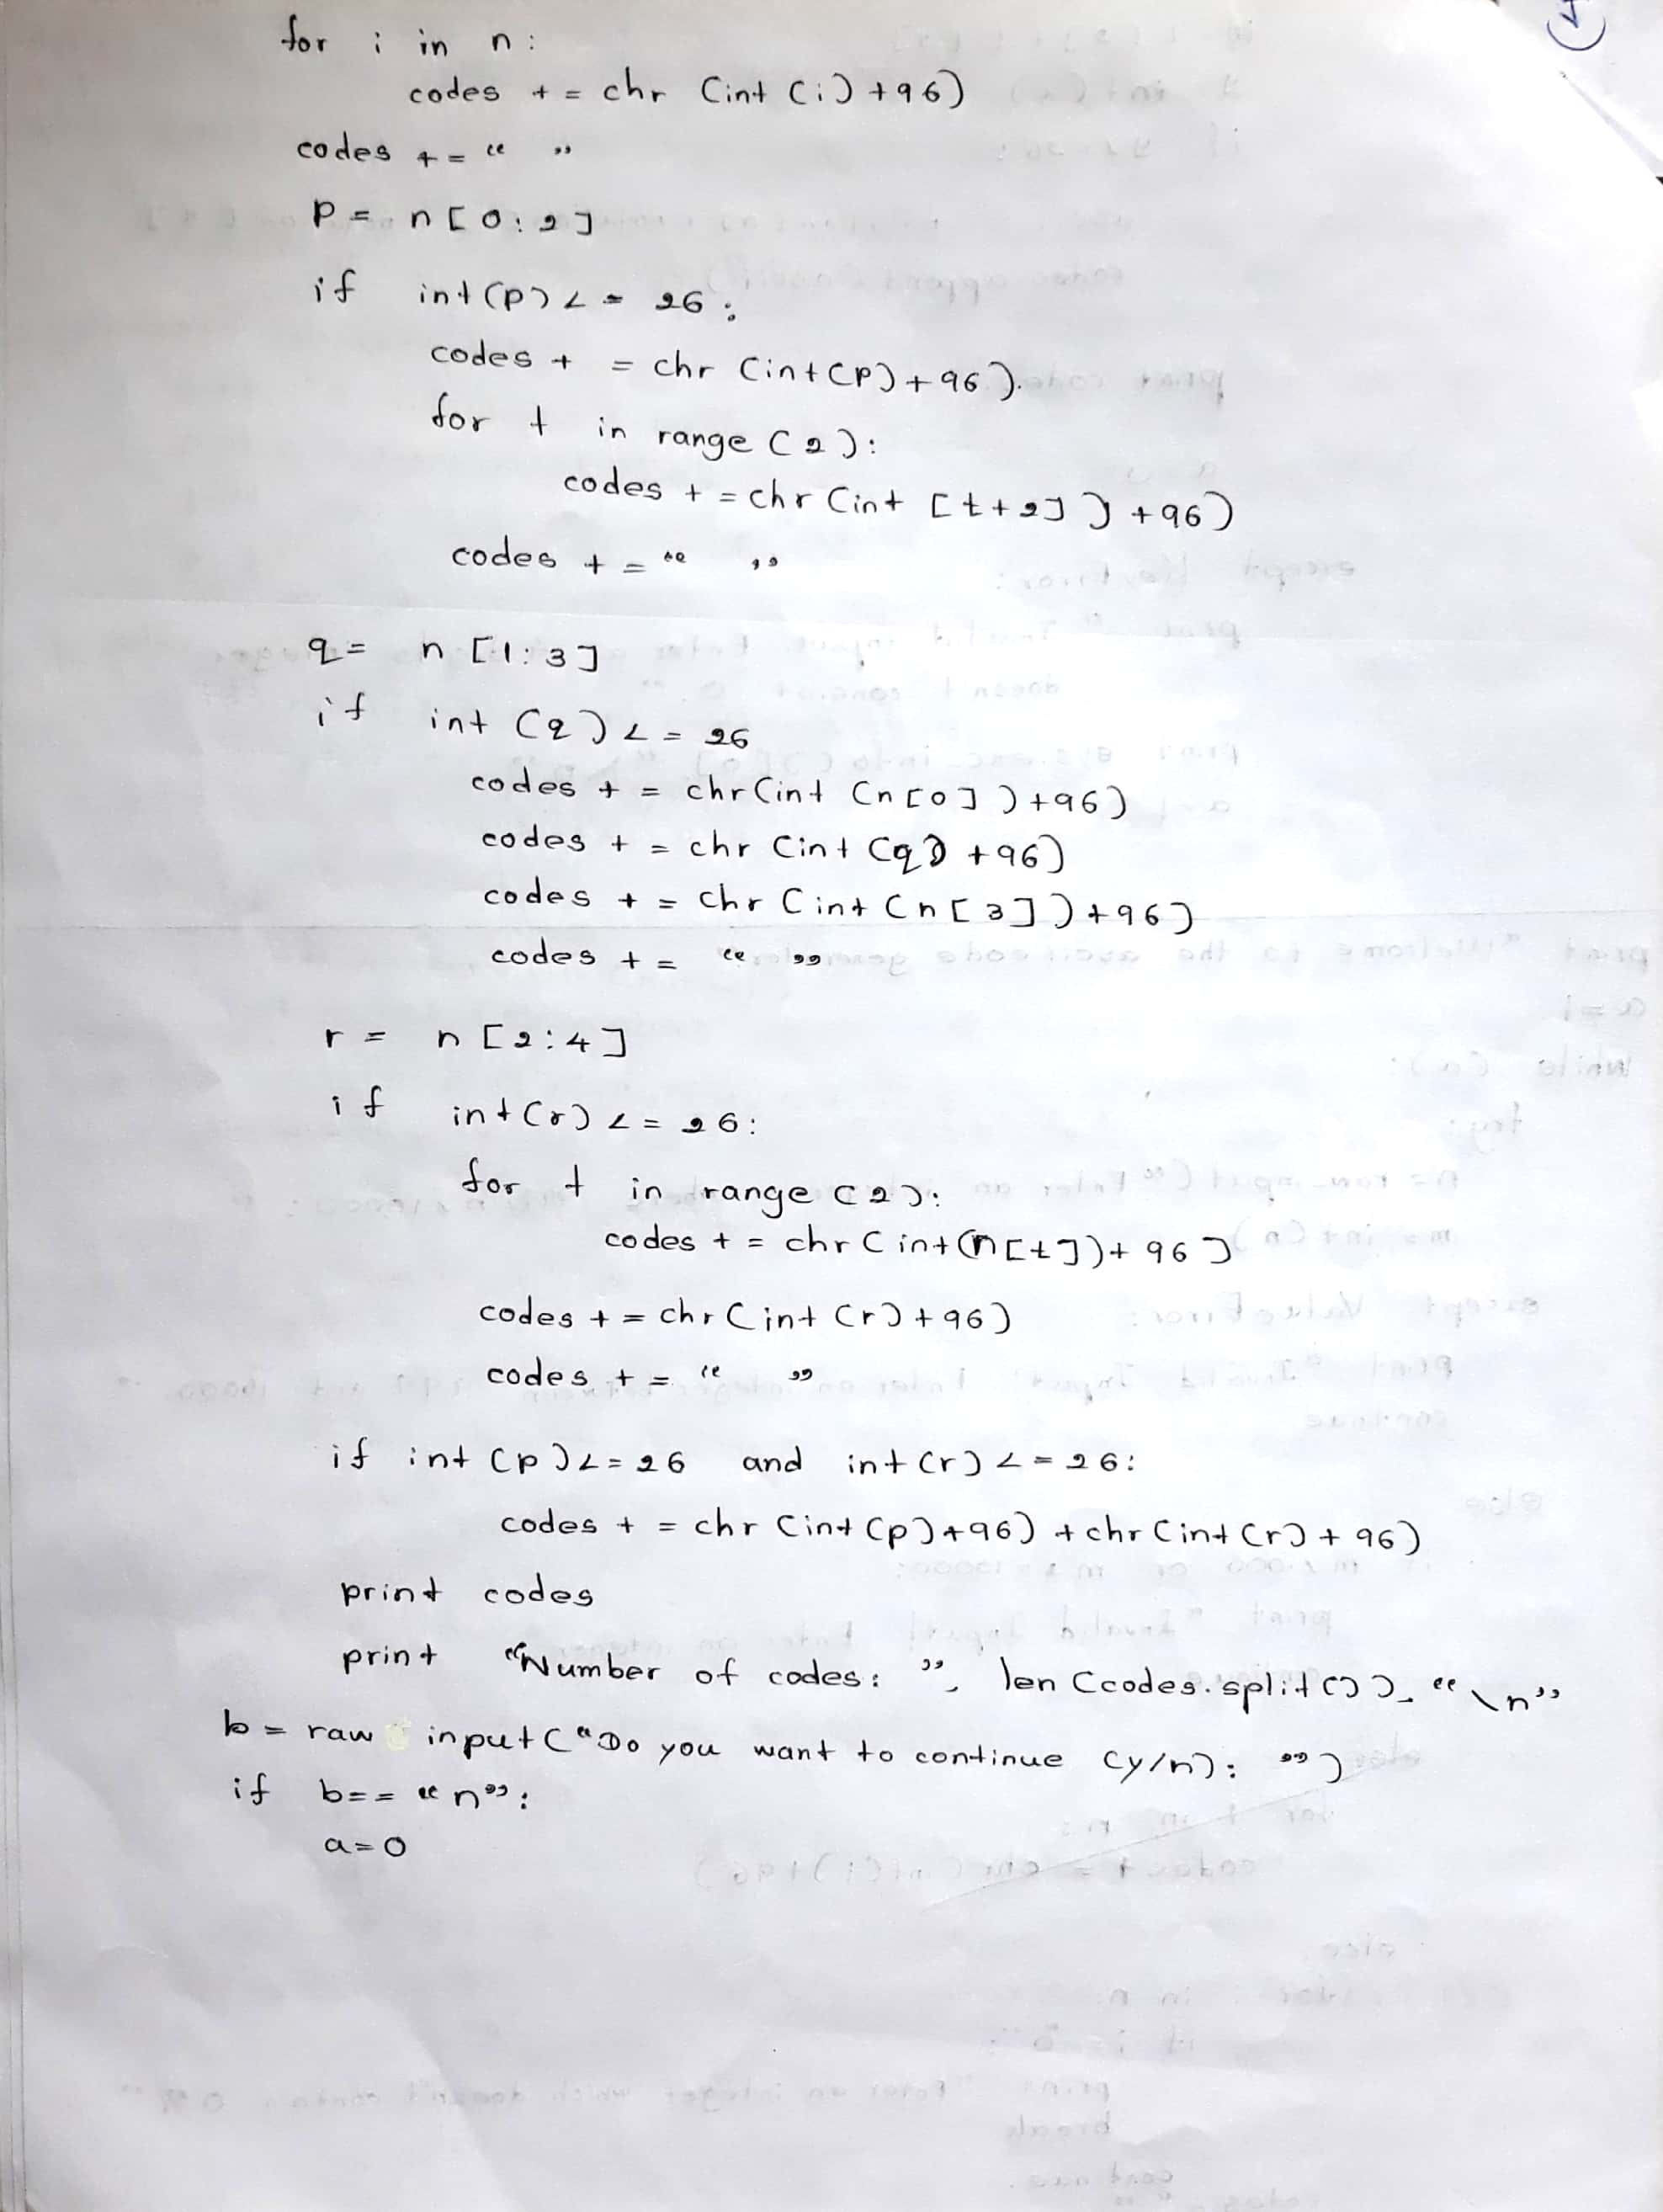 for i in n:
codes + = chr (int (i) +96)
codes + = “ ”
P = n [0:2]
if int (p) < = 26:
codes + = chr (int (p) + 96).
for t in range (2):
codes + = chr (int [t+2] ) +96)
codes + = “ ”
q = n [1:3]
if int (q) < = 26
codes + = chr (int (n[0] ) +96)
codes + = chr (int (q) +96)
codes + = chr (int (n[3]) +96)
codes + = “ ”
r = n [2:4]
if int (r) < = 26:
for t in range (2):
codes + = chr (int (n[t]) + 96)
codes + = chr (int (r) + 96)
codes + = “ ”
if int (p) < = 26 and int (r) < = 26:
codes + = chr (int (p) +96) + chr (int (r) + 96)
print codes
print “Number of codes: ”, len (codes.split()), “\n”
b = raw input (“Do you want to continue (y/n): ”)
if b == “n”:
a=0